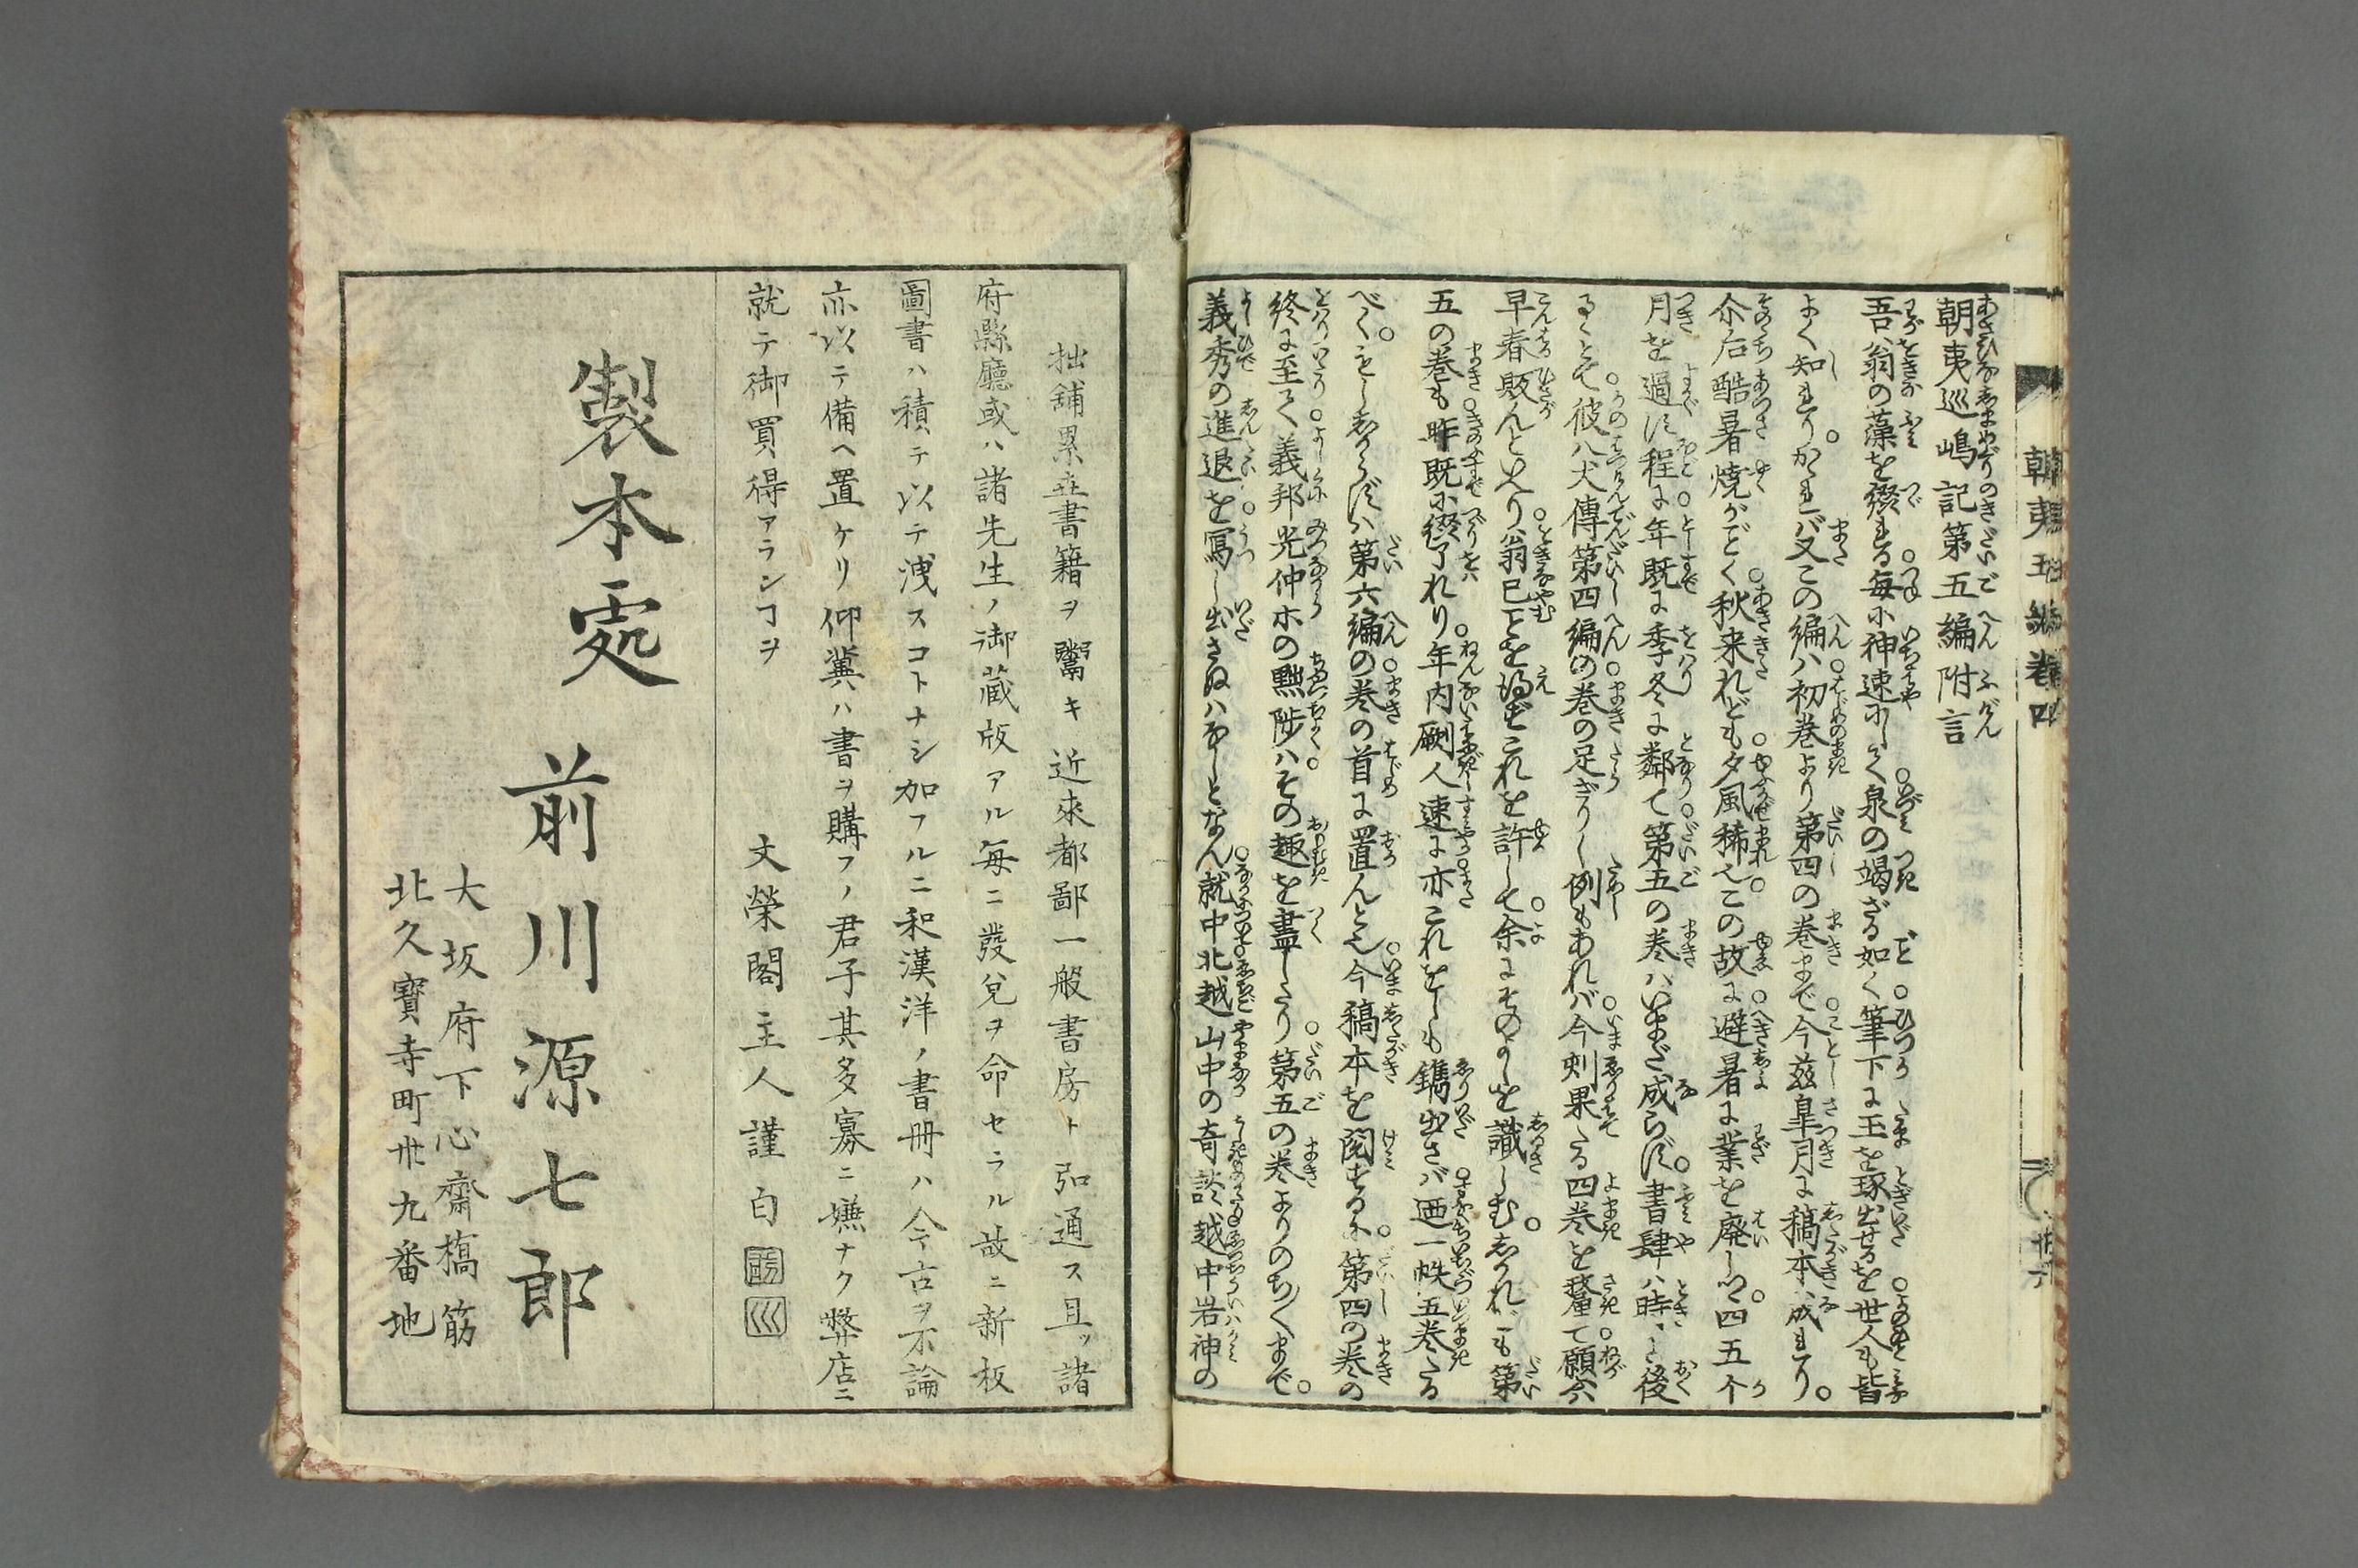 朝夷巡嶋記第五編附言
吾翁の藻を綴るゝ毎に神速にして泉の竭ざる如く筆下に玉を琢出せるを世人も皆
よく知れり。かゝれバ又この編ハ初巻より第四の巻まで今茲皐月に稿本ハ成れり。
尒后酷暑燒がごとく秋来れども夕風稀也。この故に避暑に業を廃しつゝ。四五个
月を過す程に年既に季冬に鄰て第五の巻ハいまだ成らず。書肆ハ時に後
るゝとて彼八犬傳第四編の巻の足ざりし例もあれバ今刻果たる四巻を釐て願ハ
早春販んといへり翁已ことを得ずこれを許して。余にそのよしを識しむ。しかれども第
五の巻も昨既に綴了れり年内劂人速に亦これをしも鐫出さバ廼一帙五巻たる
べく。もししからずハ第六編の巻の首に置んと也今稿本を閲するに。第四の巻の
終に至て義邦光仲ホの黜陟ハその趣を盡したり第五の巻よりのち〳〵まで。
義秀の進退を寫し出さぬハなしとなん就中北越山中の奇談越中岩神の
朝夷五編巻四
拙舗累世書籍ヲ鬻キ近來都鄙一般書房ト弘通ス且ツ諸
府縣廳或ハ諸先生ノ御蔵版アル毎ニ發兌ヲ命セラル故ニ新板
圖書ハ積テ以テ洩スコトナシ加フルニ和漢洋ノ書冊ハ今古ヲ不論
亦以テ備ヘ置ケリ仰冀ハ書ヲ購フノ君子其多寡ニ嫌ナク弊店ニ
就テ御買得アランヿヲ
文榮閣主人謹白
製本處
前川源七郎
大坂府下心齋橋筋
北久寶寺町卅九番地